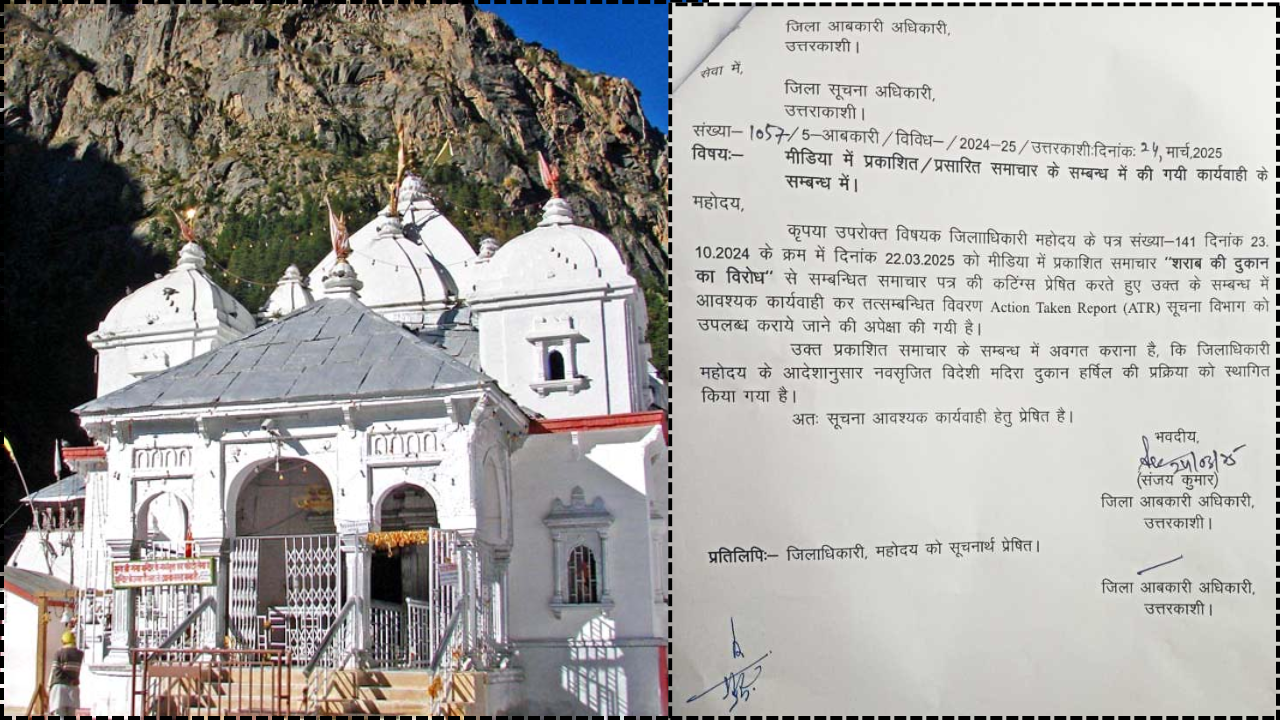 जिला आबकारी अधिकारी,
उत्तरकाशी।
सेवा में,
जिला सूचना अधिकारी,
उत्तराकाशी।
संख्या– 1057/5–आबकारी/विविध–/2024–25/उत्तरकाशी:दिनांक: 24, मार्च,2025
विषयः– मीडिया में प्रकाशित/प्रसारित समाचार के सम्बन्ध में की गयी कार्यवाही के
सम्बन्ध में।
महोदय,
कृपया उपरोक्त विषयक जिलााधिकारी महोदय के पत्र संख्या–141 दिनांक 23.
10.2024 के क्रम में दिनांक 22.03.2025 को मीडिया में प्रकाशित समाचार "शराब की दुकान
का विरोध" से सम्बन्धित समाचार पत्र की कटिंग्स प्रेषित करते हुए उक्त के सम्बन्ध में
आवश्यक कार्यवाही कर तत्सम्बन्धित विवरण Action Taken Report (ATR) सूचना विभाग को
उपलब्ध कराये जाने की अपेक्षा की गयी है।
उक्त प्रकाशित समाचार के सम्बन्ध में अवगत कराना है, कि जिलाधिकारी
महोदय के आदेशानुसार नवसृजित विदेशी मदिरा दुकान हर्षिल की प्रक्रिया को स्थागित
किया गया है।
अतः सूचना आवश्यक कार्यवाही हेतु प्रेषित है।
भवदीय,
24/03/25
(संजय कुमार)
जिला आबकारी अधिकारी,
उत्तरकाशी।
प्रतिलिपिः– जिलाधिकारी, महोदय को सूचनार्थ प्रेषित।
जिला आबकारी अधिकारी,
उत्तरकाशी।